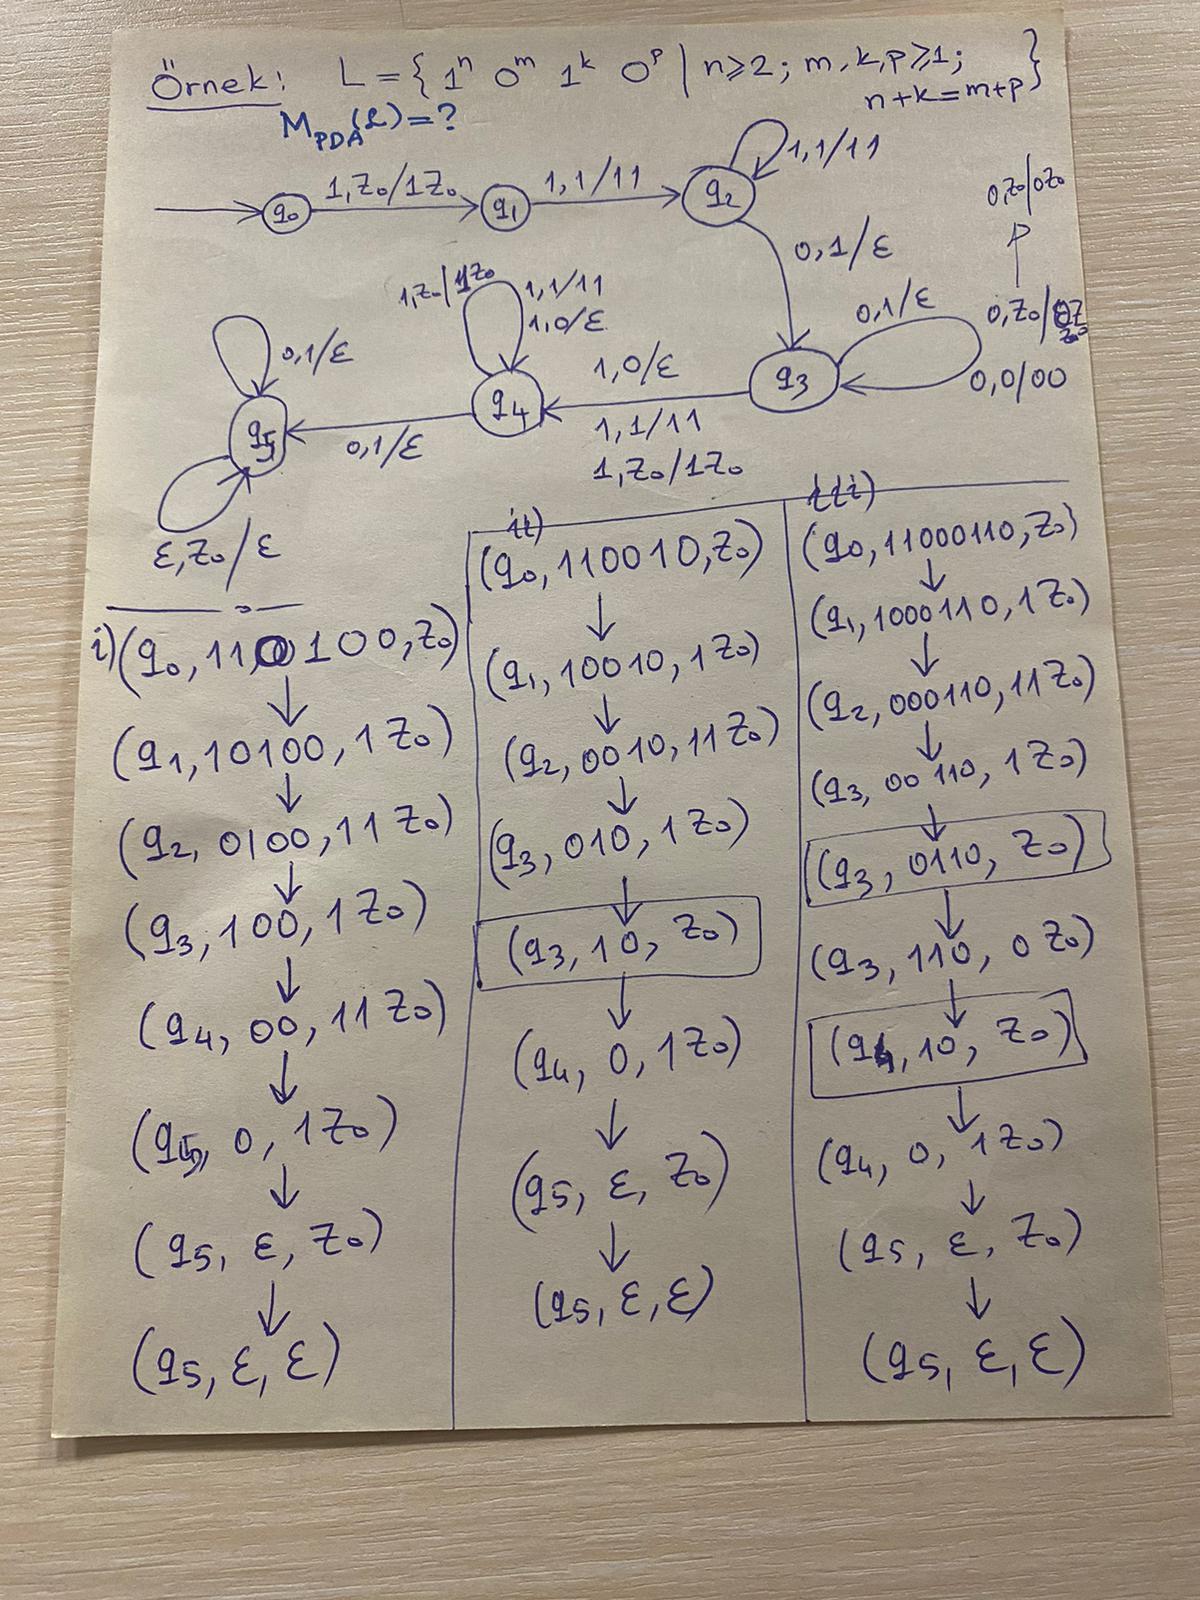 Örnek: L = { 1ⁿ 0ᵐ 1ᵏ 0ᵖ | n≥2; m,k,p≥1;
n+k=m+p }
M_PDA(L)=?
1,Z₀/1Z₀
1,1/11
1,1/11
q₀
q₁
q₂
0,Z₀/0Z₀
0,1/ε
1,Z₀/1Z₀
1,1/11
1,0/ε
0,1/ε
0,0/00
0,1/ε
1,0/ε
q₃
q₄
1,1/11
1,Z₀/1Z₀
0,1/ε
q₅
ε,Z₀/ε
i) (q₀, 110100, Z₀)
(q₁, 10100, 1Z₀)
(q₂, 0100, 11Z₀)
(q₃, 100, 1Z₀)
(q₄, 00, 11Z₀)
(q₅, 0, 1Z₀)
(q₅, ε, Z₀)
(q₅, ε, ε)
ii)
(q₀, 110010, Z₀)
(q₁, 10010, 1Z₀)
(q₂, 0010, 11Z₀)
(q₃, 010, 1Z₀)
(q₃, 10, Z₀)
(q₄, 0, 1Z₀)
(q₅, ε, Z₀)
(q₅, ε, ε)
iii)
(q₀, 11000110, Z₀)
(q₁, 1000110, 1Z₀)
(q₂, 000110, 11Z₀)
(q₃, 00110, 1Z₀)
(q₃, 0110, Z₀)
(q₃, 110, 0Z₀)
(q₄, 10, Z₀)
(q₄, 0, 1Z₀)
(q₅, ε, Z₀)
(q₅, ε, ε)